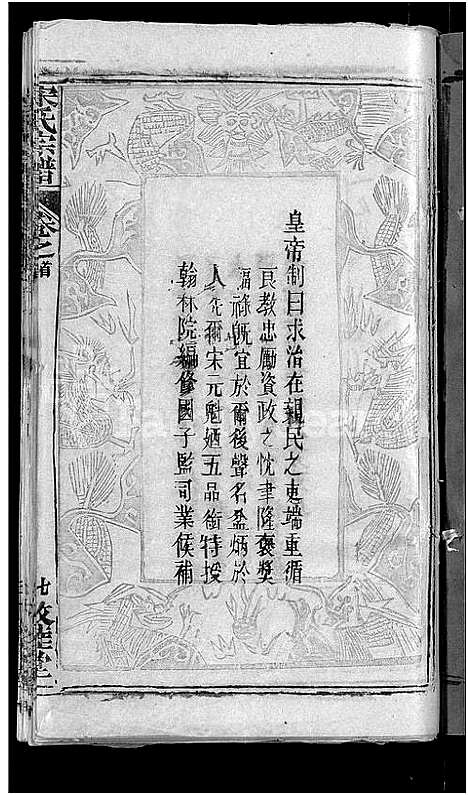 皇帝制曰求治在親民之吏端重循
良教忠勵資政之忱聿隆褒獎
福祿旣宜於爾後聲名益炳於
人先爾宋元魁廼五品銜特授
翰林院編修國子監司業候補
宋氏宗譜
卷之首
七
敦睦堂